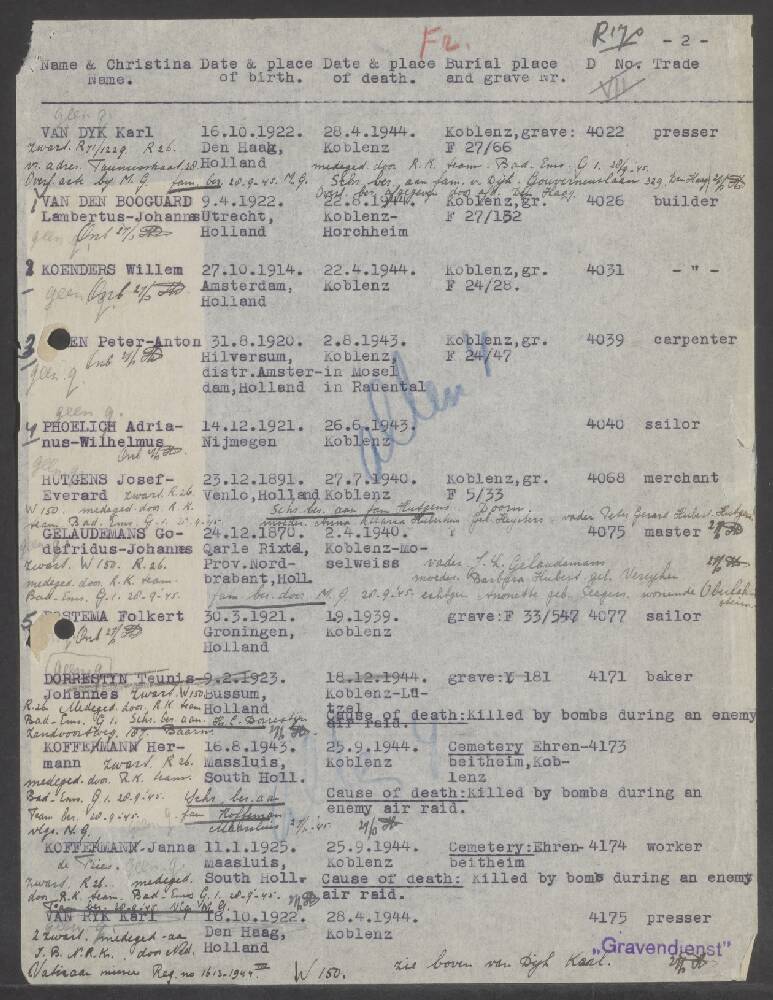 Fr. R170 - 2 -
Name & Christina Date & place Date & place Burial place D No. Trade
Name. of birth. of death. and grave Nr.
VII
geen g.
VAN DYK Karl 16.10.1922. 28.4.1944. Koblenz,grave: 4022 presser
zwart. R71/1229 R 26. Den Haag, Koblenz F 27/66
Holland medeged. door R.K. team. Bad. Ems. G 1. 20/9-45.
fam. ber. 20.9-45. M.G. Schr. ber. aan fam. v. Dijk. Gouverneurlaan 329 Den Haag
1 VAN DEN BOOGUARD 9.4.1922. 22.8.1944. Koblenz,gr. 4026 builder
Lambertus-Johannes Utrecht, Koblenz- F 27/132
geen Holland Horchheim
2 KOENDERS Willem 27.10.1914. 22.4.1944. Koblenz,gr. 4031 - " -
geen Amsterdam, Koblenz F 24/28.
Holland
3 EN Peter-Anton 31.8.1920. 2.8.1943. Koblenz,gr. 4039 carpenter
Hilversum, Koblenz, F 24/47
geen g distr.Amster- in Mosel
dam,Holland in Rauental
allen
geen g.
4 PHOELICH Adria- 14.12.1921. 26.6.1943. 4040 sailor
nus-Wilhelmus Nijmegen Koblenz
HUTGENS Josef- 23.12.1891. 27.7.1940. Koblenz,gr. 4068 merchant
Everard zwart R.26. Venlo,Holland Koblenz F 5/33
W 150. medeged. door R.K. Schr. ber. aan fam Hutgens Doorn.
team Bad. Ems G.1. moeder: Anna vader Peter Gerard Hubert Hutgens
GELAUDEMANS Go- 24.12.1870. 2.4.1940. 4075 master
defridus-Johannes Qarle Rixtel, Koblenz-Mo-
zwart. W 150. R.26. Prov.Nord- selweiss vader J.H. Gelaudemans
medeged. door. R.K. team. brabant,Holl. moeder. Barbara Hubert geb. Vereyken
Bad-Ems. G.1. 20.9-45. fam ber. door M.G. 20.9-45. echtgen geb. Seegers. wonende
5 OSTEMA Folkert 30.3.1921. 19.1939. grave:F 33/547 4077 sailor
Groningen, Koblenz
Holland
geen g
DORRESTYN Teunis- 9.2.1923. 18.12.1944. grave:Y 181 4171 baker
Johannes zwart. W150 Bussum, Koblenz-Lü-
R.26 Medeged. door R.K. team Holland tzel
Bad-Ems. G 1. Schr. ber. aan. H.C. Dorrestyn Cause of death:Killed by bombs during an enemy
Zandvoortweg. 187. Baarn. air raid.
KOFFERMANN Her- 16.8.1943. 25.9.1944. Cemetery Ehren- 4173
mann zwart. R 26. Massluis, Koblenz beitheim,Kob-
medeged. door. R.K. team. South Holl. lenz
Bad-Ems. G 1. 20.9-45. Schr. ber. aan Cause of death:Killed by bombs during an
Team ber. 20.9-45. fam Kofferman enemy air raid.
vlgs. M.G. Maassluis
KOFFERMANN-Janna 11.1.1925. 25.9.1944. Cemetery:Ehren- 4174 worker
de Vries. Maasluis, Koblenz beitheim
zwart. R26. medeged. South Holl. Cause of death: Killed by bombs during an enemy
door R.K. team. Bad-Ems G.1. 20-9-45. air raid.
Team ber. 20-9-45 Vlg M.G.
VAN RYK Karl 18.10.1922. 28.4.1944. 4175 presser
2 zwart. medeged. aan Den Haag, Koblenz
I.B. N.R.K. door Ned. Holland „Gravendienst"
Vaticaan missie Reg. no 1613-1944 W 150. zie boven van Dijk Karl.